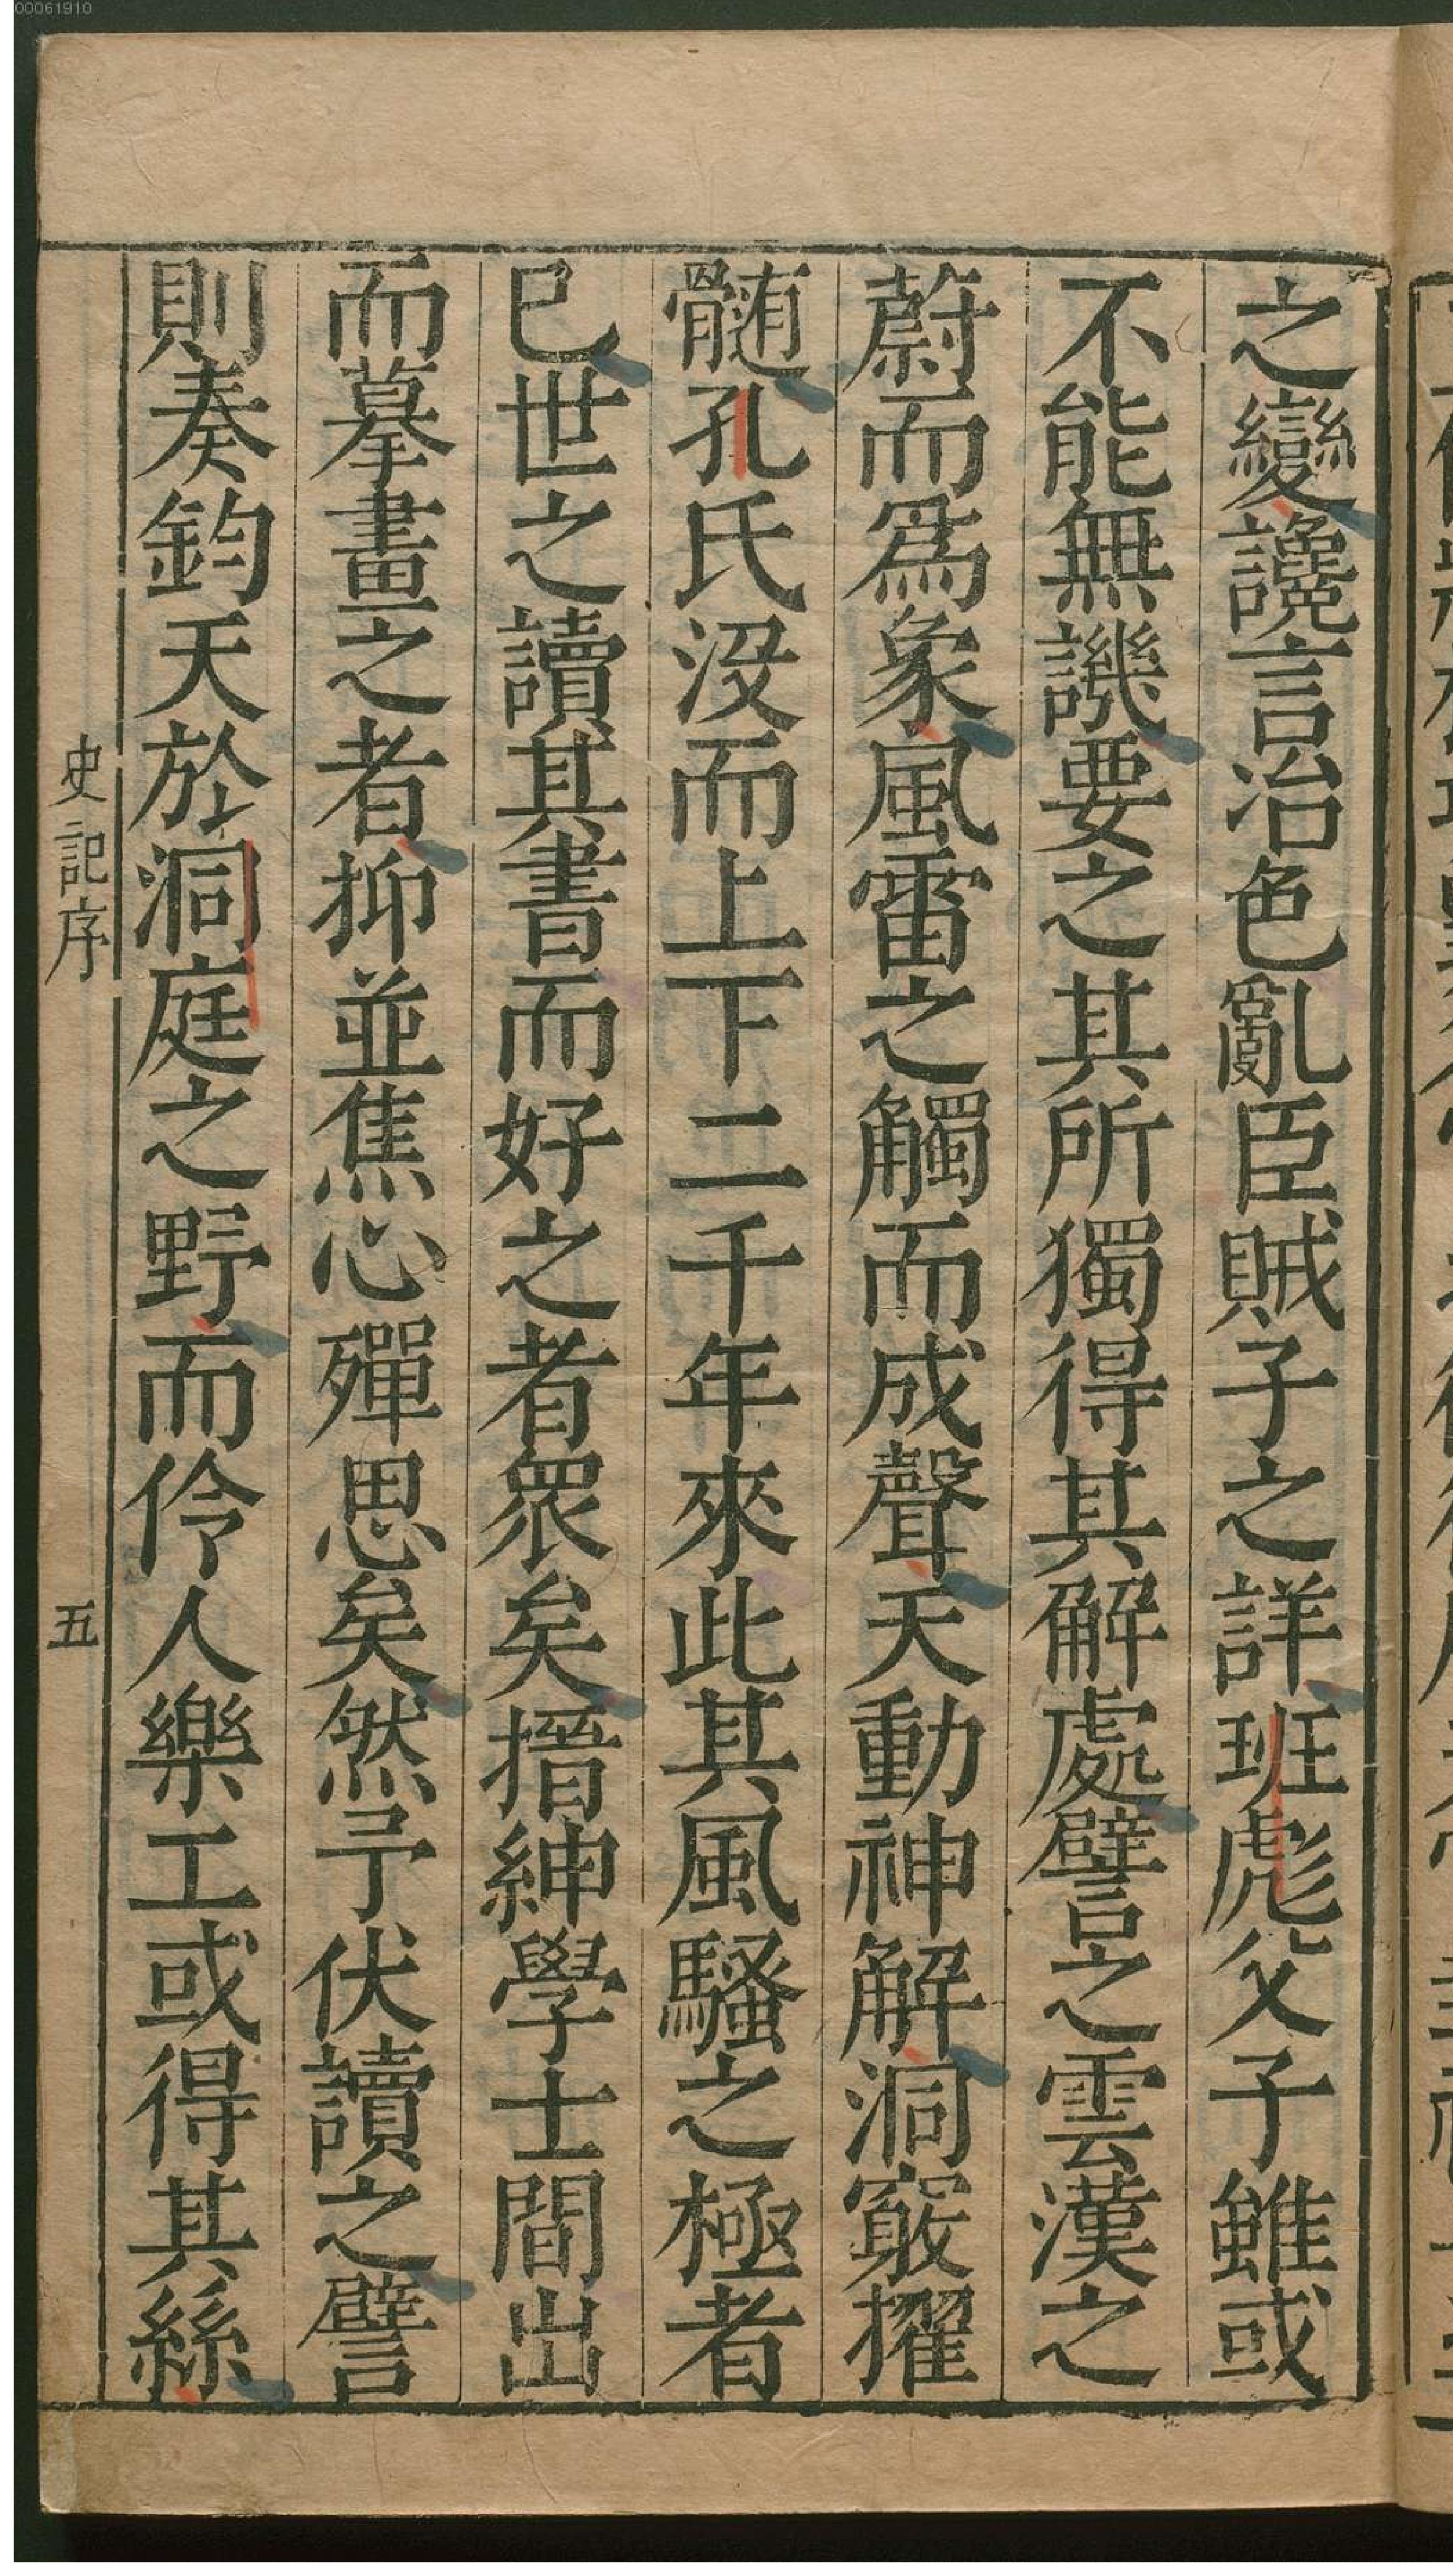 之變讒言冶色亂臣賊子之詳班彪父子雖或
不能無譏要之其所獨得其解處譬之雲漢之
蔚而爲象風雷之觸而成聲天動神解洞竅擢
髄孔氏没而上下二千年來此其風騷之極者
已世之讀其書而好之者衆矣搢紳學士間出
而摹畫之者抑並焦心殫思矣然予伏讀之譬
則奏鈞天於洞庭之野而伶人樂工或得其絲
史記序
五
00061910